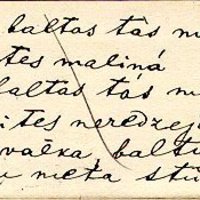 baltas tās m
tes malinā
altas tās m
ites neredzej
vaēka, baltu
u meta stu